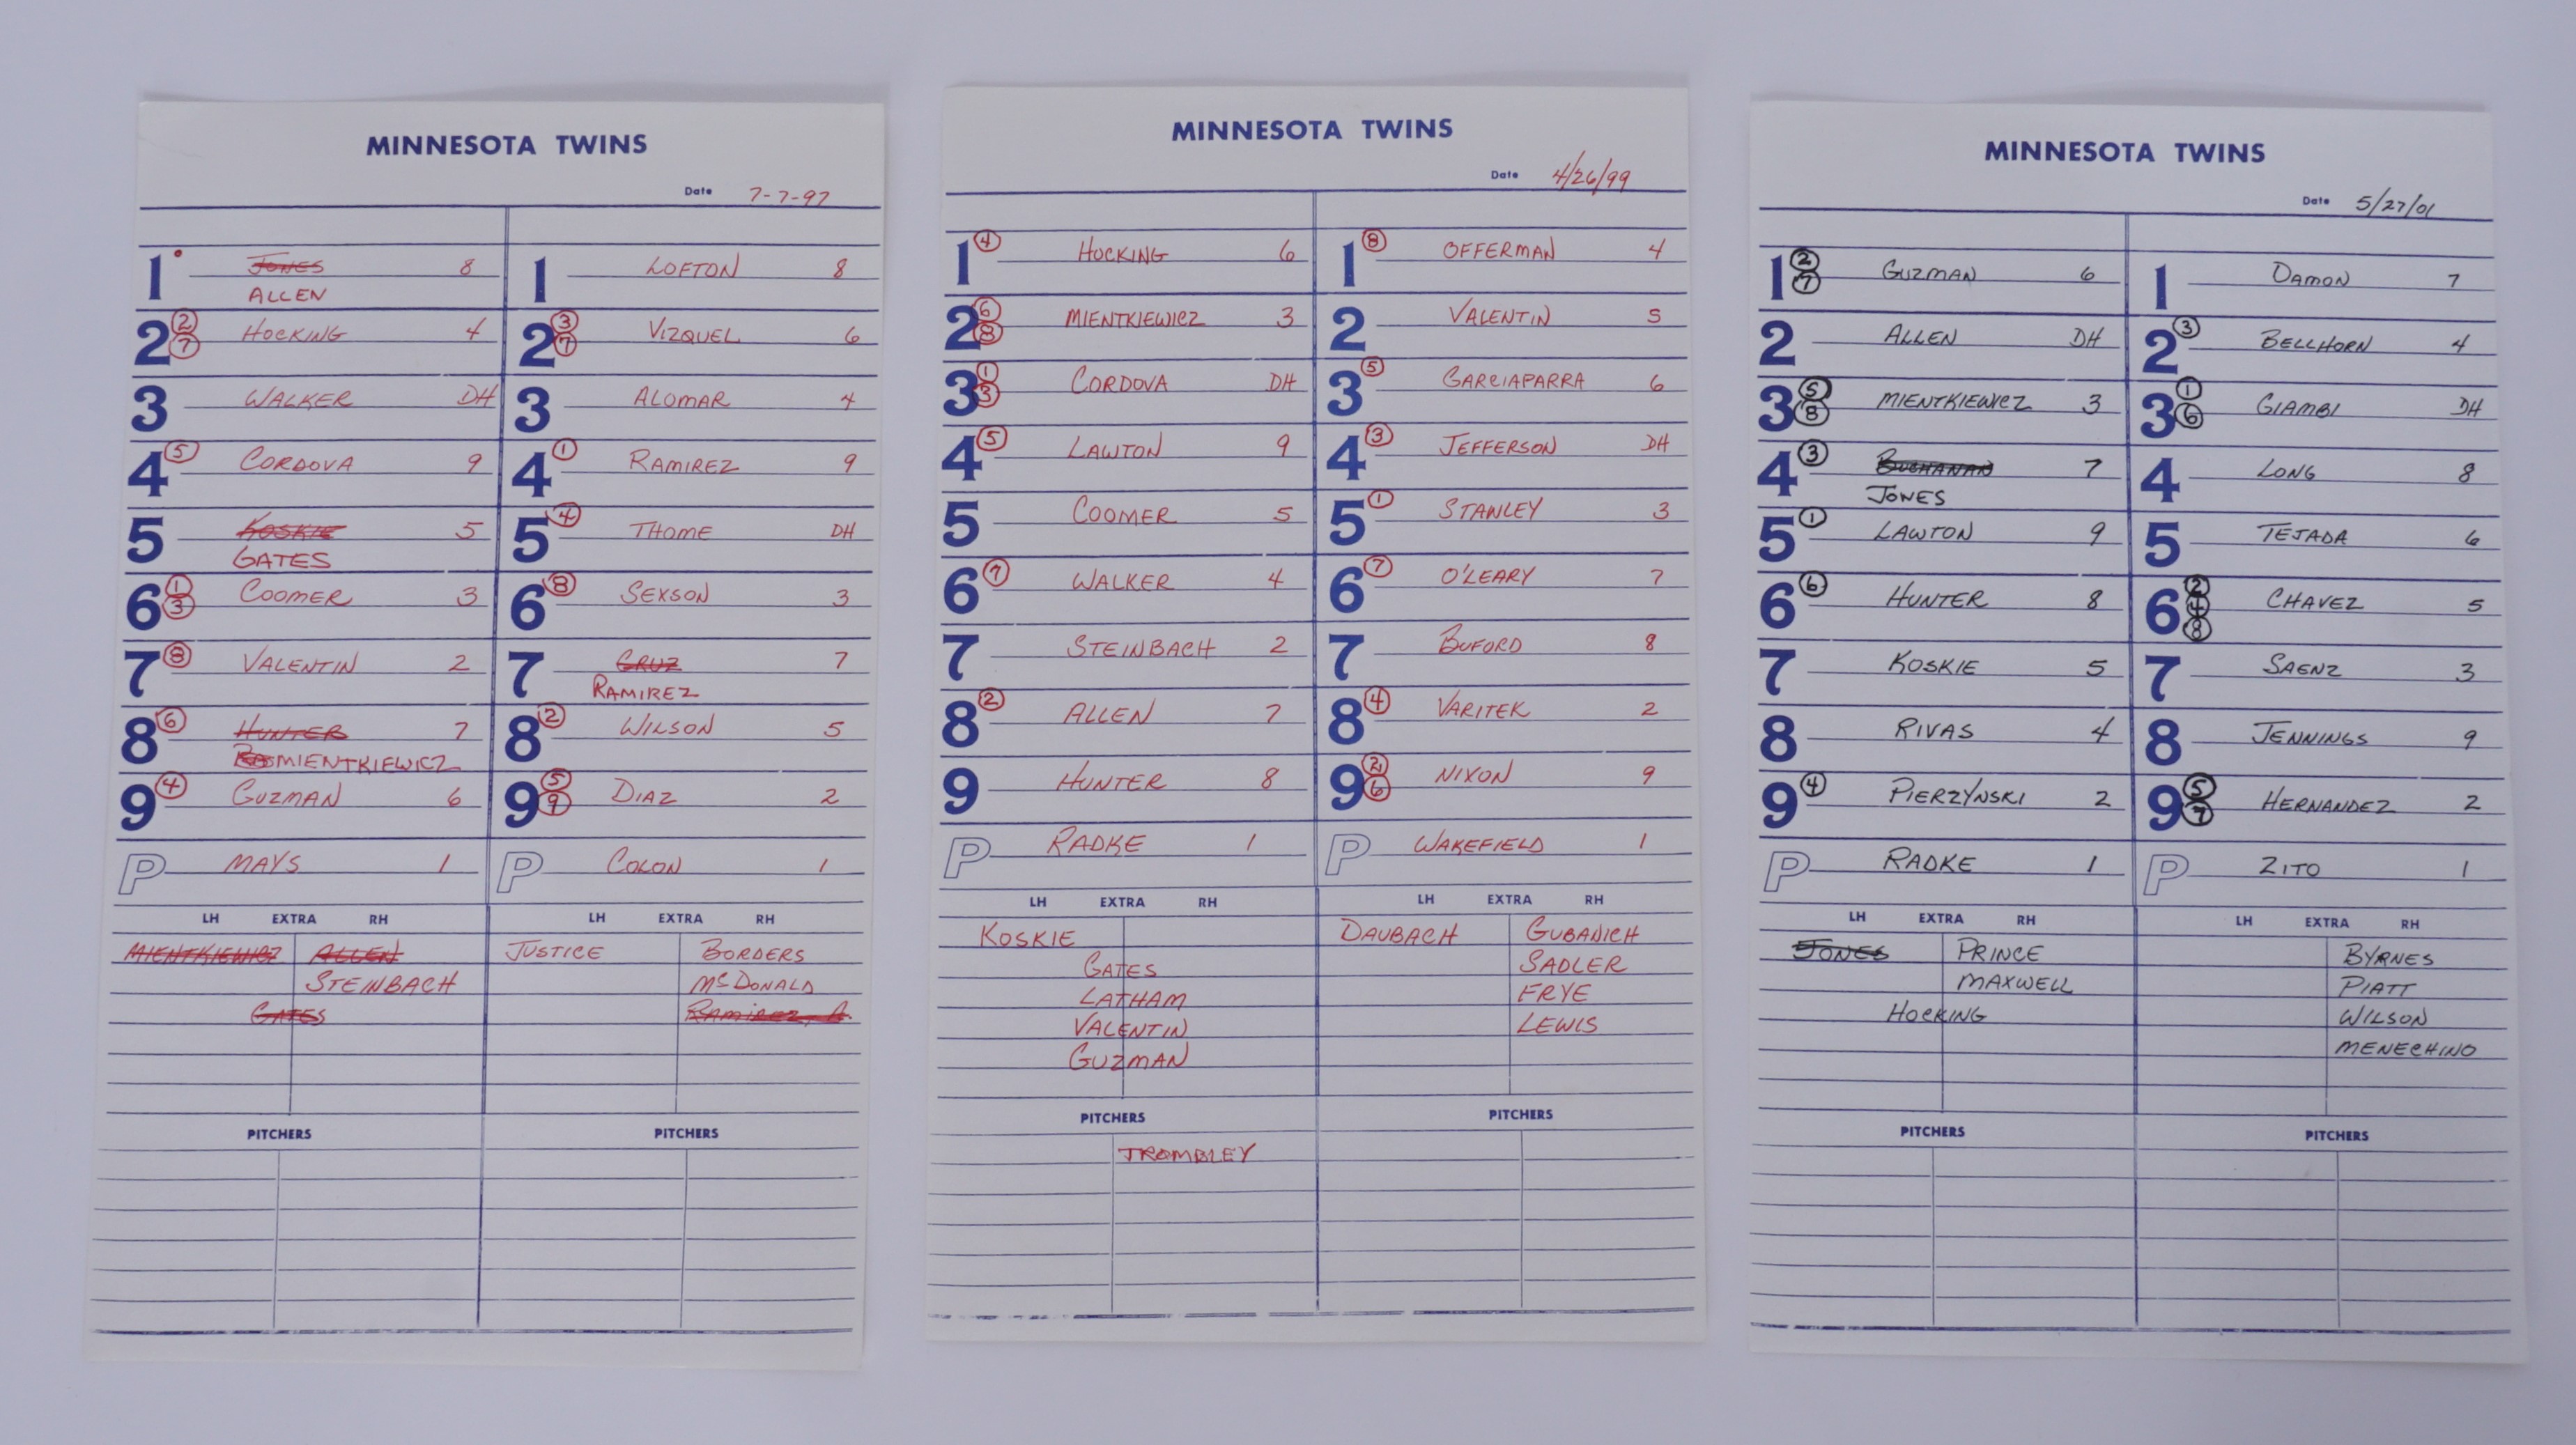 MINNESOTA TWINS
Date 7-7-97
1 JONES 8
ALLEN
2 ② ⑦ HOCKING 4
3 WALKER DH
4 ⑤ CORDOVA 9
5 KOSKIE 5
GATES
6 ① ③ COOMER 3
7 ⑧ VALENTIN 2
8 ⑥ HUNTER 7
MIENTKIEWICZ
9 ④ GUZMAN 6
P MAYS 1
1 LOFTON 8
2 ③ ⑦ VIZQUEL 6
3 ALOMAR 4
4 ① RAMIREZ 9
5 ④ THOME DH
6 ⑧ SEXSON 3
7 CRUZ 7
RAMIREZ
8 ② WILSON 5
9 ⑤ ⑨ DIAZ 2
P COLON 1
LH EXTRA RH
MIENTKIEWICZ ALLEN
STEINBACH
GATES
LH EXTRA RH
JUSTICE BORDERS
McDONALD
RAMIREZ, A.
PITCHERS
PITCHERS
MINNESOTA TWINS
Date 4/26/99
1 ④ HOCKING 6
2 ⑥ ⑧ MIENTKIEWICZ 3
3 ① ③ CORDOVA DH
4 ⑤ LAWTON 9
5 COOMER 5
6 ⑦ WALKER 4
7 STEINBACH 2
8 ② ALLEN 7
9 HUNTER 8
P RADKE 1
1 ⑧ OFFERMAN 4
2 VALENTIN 5
3 ⑤ GARCIAPARRA 6
4 ③ JEFFERSON DH
5 ① STANLEY 3
6 ⑦ O'LEARY 7
7 BUFORD 8
8 ④ VARITEK 2
9 ② ⑥ NIXON 9
P WAKEFIELD 1
LH EXTRA RH
KOSKIE
GATES
LATHAM
VALENTIN
GUZMAN
LH EXTRA RH
DAUBACH GUBANICH
SADLER
FRYE
LEWIS
PITCHERS
TROMBLEY
PITCHERS
MINNESOTA TWINS
Date 5/27/01
1 ② ⑦ GUZMAN 6
2 ALLEN DH
3 ⑤ ⑧ MIENTKIEWICZ 3
4 ③ BUCHANAN 7
JONES
5 ① LAWTON 9
6 ⑥ HUNTER 8
7 KOSKIE 5
8 RIVAS 4
9 ④ PIERZYNSKI 2
P RADKE 1
1 DAMON 7
2 ③ BELLHORN 4
3 ① ⑥ GIAMBI DH
4 LONG 8
5 TEJADA 6
6 ② ④ ⑧ CHAVEZ 5
7 SAENZ 3
8 JENNINGS 9
9 ⑤ ⑦ HERNANDEZ 2
P ZITO 1
LH EXTRA RH
JONES PRINCE
MAXWELL
HOCKING
LH EXTRA RH
BYRNES
PIATT
WILSON
MENECHINO
PITCHERS
PITCHERS